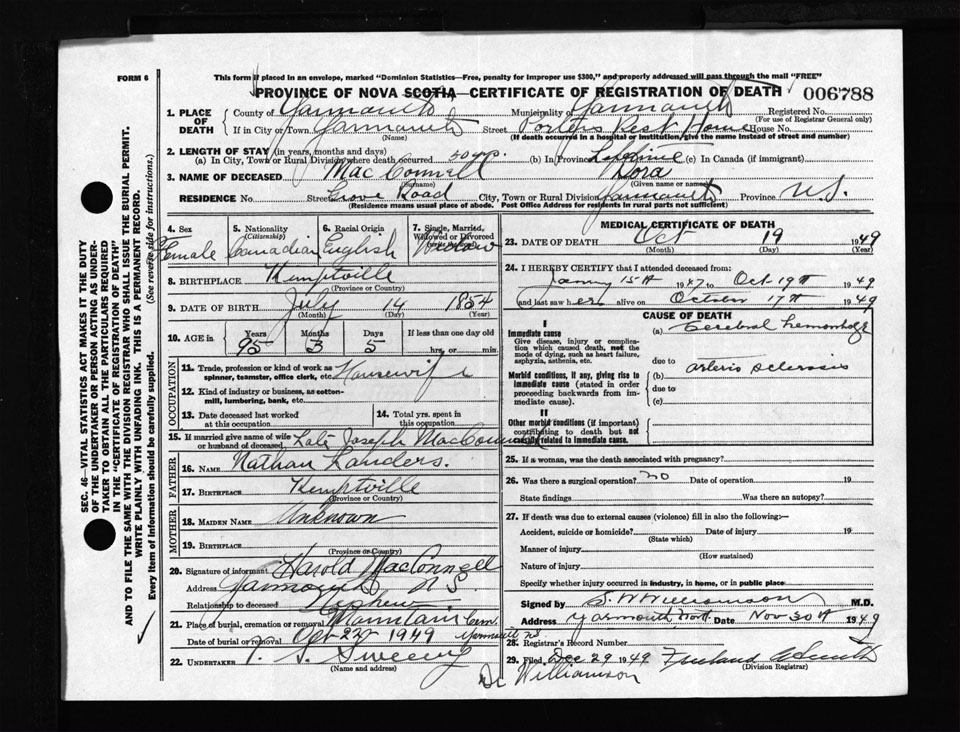 FORM 6
This form if placed in an envelope, marked "Dominion Statistics—Free, penalty for improper use $300," and properly addressed will pass through the mail "FREE"
PROVINCE OF NOVA SCOTIA—CERTIFICATE OF REGISTRATION OF DEATH 006788
1. PLACE OF DEATH
County of Yarmouth Municipality of Yarmouth Registered No.
(For use of Registrar General only)
If in City or Town Yarmouth Street Rest Home House No.
(Name) (If death occurred in a hospital or institution, give the name instead of street and number)
2. LENGTH OF STAY (in years, months and days)
(a) In City, Town or Rural Division where death occurred 50 yrs. (b) In Province Lifetime (c) In Canada (if immigrant)
3. NAME OF DECEASED MacConnell Dora
(Surname) (Given name or names)
RESIDENCE No. Street Road City, Town or Rural Division Yarmouth Province N.S.
(Residence means usual place of abode. Post Office Address for residents in rural parts not sufficient)
4. Sex Female
5. Nationality (Citizenship) Canadian
6. Racial Origin English
7. Single, Married, Widowed or Divorced (write the word) Widow
8. BIRTHPLACE Kemptville
(Province or Country)
9. DATE OF BIRTH July 14 1854
(Month) (Day) (Year)
10. AGE in Years Months Days If less than one day old
95 3 5 hrs. or min.
OCCUPATION
11. Trade, profession or kind of work as spinner, teamster, office clerk, etc. Housewife
12. Kind of industry or business, as cotton-mill, lumbering, bank, etc.
13. Date deceased last worked at this occupation
14. Total yrs. spent in this occupation
15. If married give name of wife or husband of deceased Late Joseph MacConnell
FATHER
16. NAME Nathan Landers.
17. BIRTHPLACE Kemptville
(Province or Country)
MOTHER
18. MAIDEN NAME Unknown
19. BIRTHPLACE
(Province or Country)
20. Signature of informant Harold MacConnell
Address Yarmouth N.S.
Relationship to deceased Nephew
21. Place of burial, cremation or removal Mountain Cem. Yarmouth NS
Date of burial or removal Oct 22 1949
22. UNDERTAKER Sweeny
(Name and address)
MEDICAL CERTIFICATE OF DEATH
23. DATE OF DEATH Oct 19 1949
(Month) (Day) (Year)
24. I HEREBY CERTIFY that I attended deceased from:
15th 1947 to Oct 19th 1949
and last saw her alive on October 17th 1949
CAUSE OF DEATH
I
Immediate cause (a) Cerebral hemorrhage
Give disease, injury or complication which caused death, not the mode of dying, such as heart failure, asphyxia, asthenia, etc.
due to
Morbid conditions, if any, giving rise to immediate cause (stated in order proceeding backwards from immediate cause).
(b) arterio sclerosis
due to
(c)
II
Other morbid conditions (if important) contributing to death but not causally related to immediate cause.
25. If a woman, was the death associated with pregnancy?
26. Was there a surgical operation? no Date of operation 19
State findings Was there an autopsy?
27. If death was due to external causes (violence) fill in also the following:—
Accident, suicide or homicide? Date of injury 19
(State which)
Manner of injury
(How sustained)
Nature of injury
Specify whether injury occurred in industry, in home, or in public place
Signed by S. W. Williamson M.D.
Address Yarmouth Date Nov 30th 1949
28. Registrar's Record Number
29. Filed Dec 29 1949
(Division Registrar)
Dr Williamson
SEC. 46—VITAL STATISTICS ACT MAKES IT THE DUTY
OF THE UNDERTAKER OR PERSON ACTING AS UNDER-
TAKER TO OBTAIN ALL THE PARTICULARS REQUIRED
IN THE "CERTIFICATE OF REGISTRATION OF DEATH"
AND TO FILE THE SAME WITH THE DIVISION REGISTRAR WHO SHALL ISSUE THE BURIAL PERMIT.
WRITE PLAINLY WITH UNFADING INK. THIS IS A PERMANENT RECORD.
Every item of information should be carefully supplied. (See reverse side for instructions.)